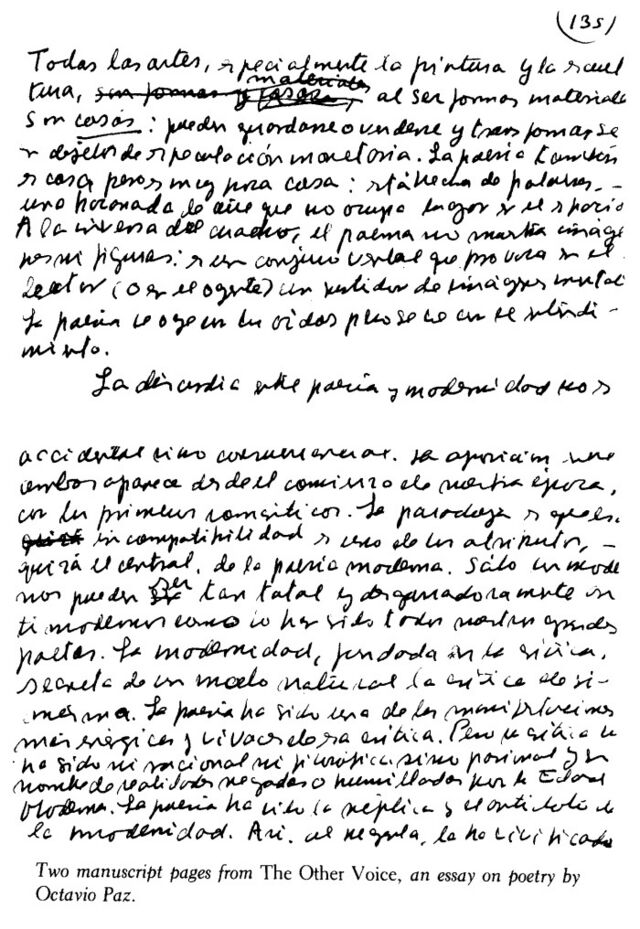 (135)
Todas las artes, especialmente la pintura y la escul
tura, sin formas y materiales al ser formas materiales
son cosas: pueden guardarse o venderse y transformarse
en objetos de especulación monetaria. La poesía también
es cosa pero es muy poca cosa: está hecha de palabras, -
una bocanada de aire que no ocupa lugar en el espacio
A la inversa del cuadro, el poema no muestra imáge
nes ni figuras: es un conjuro verbal que provoca en el
lector (o en el oyente) un surtidor de imágenes mental
La poesía se oye con los oídos pero se ve con el entendi-
miento.
La discordia entre poesía y modernidad no es
accidental sino consustancial. La oposición entre
ambas aparece desde el comienzo de nuestra época,
con los primeros románticos. La paradoja es que
incompatibilidad es uno de los atributos, -
quizá el central, de la poesía moderna. Sólo un mode
nos pueden ser tan total y desgarradoramente an
timodernos como lo han sido todos nuestros grandes
poetas. La modernidad, fundada en la crítica,
secreta de un modo natural la crítica de sí-
misma. La poesía ha sido una de las manifestaciones
más enérgicas y vivaces de esa crítica. Pero su crítica no
ha sido ni racional ni filosófica sino pasional y en
nombre de realidades negadas o humilladas por la Edad
Moderna. La poesía ha sido la réplica y el antídoto de
la modernidad. Así, al negarla, la ha vivificado
Two manuscript pages from The Other Voice, an essay on poetry by
Octavio Paz.